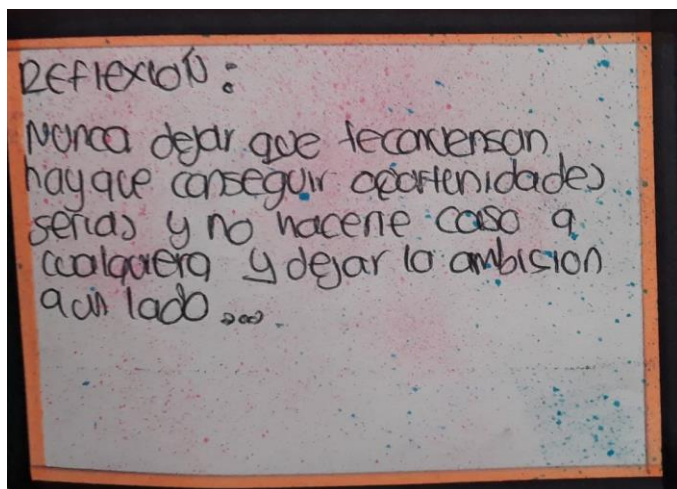 REFlEXIÓN:
Nunca dejar que teconvensan
hay que conseguir oportenidades
serias y no hacerle caso a
cualquiera y dejar la ambicion
aun lado...